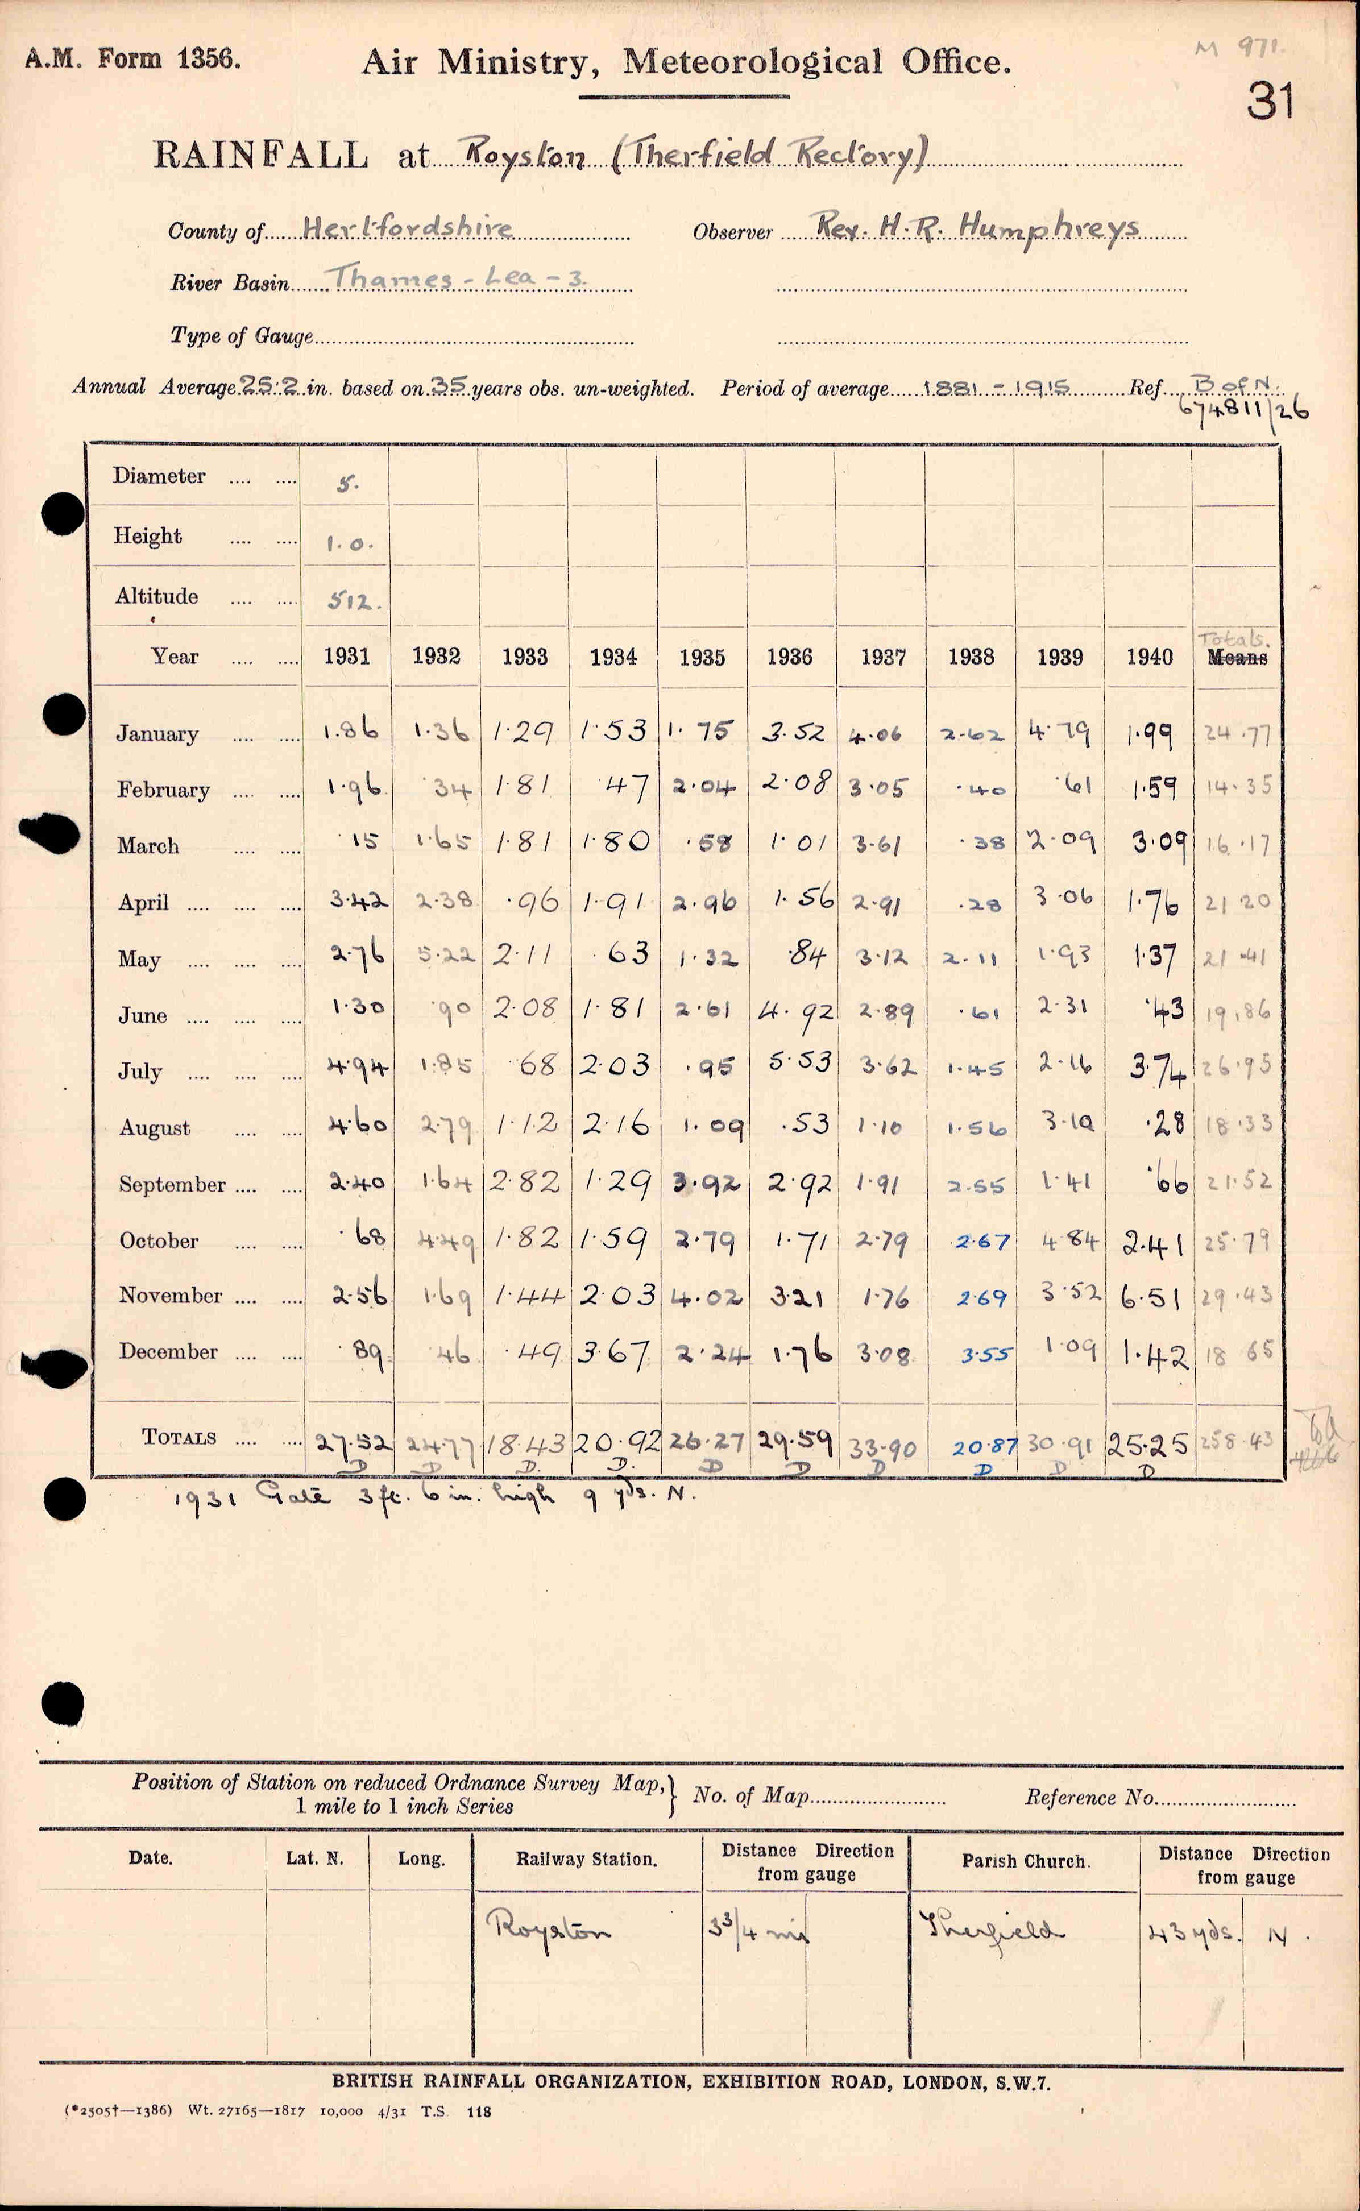 M 971.
A.M. Form 1356. Air Ministry, Meteorological Office.
31
RAINFALL at Royston (Therfield Rectory)
County of Hertfordshire Observer Rev. H.R. Humphreys
River Basin Thames - Lea - 3.
Type of Gauge
Annual Average 25.2 in. based on 35 years obs. un-weighted. Period of average 1881 - 1915 Ref. B of N.
674811/26
Diameter .... .... 5.
Height .... .... 1.0.
Altitude .... .... 512.
Totals.
Year .... .... 1931 1932 1933 1934 1935 1936 1937 1938 1939 1940 Means
January .... .... 1.86 1.36 1.29 1.53 1.75 3.52 4.06 2.62 4.79 1.99 24.77
February .... .... 1.96 .34 1.81 .47 2.04 2.08 3.05 .40 .61 1.59 14.35
March .... .... .15 1.65 1.81 1.80 .58 1.01 3.61 .38 2.09 3.09 16.17
April .... .... .... 3.42 2.38 .96 1.91 2.96 1.56 2.91 .28 3.06 1.76 21 20
May .... .... .... 2.76 5.22 2.11 .63 1.32 .84 3.12 2.11 1.93 1.37 21.41
June .... .... .... 1.30 .90 2.08 1.81 2.61 4.92 2.89 .61 2.31 .43 19.86
July .... .... .... 4.94 1.85 .68 2.03 .95 5.53 3.62 1.45 2.16 3.74 26.95
August .... .... 4.60 2.79 1.12 2.16 1.09 .53 1.10 1.56 3.10 .28 18.33
September .... .... 2.40 1.64 2.82 1.29 3.92 2.92 1.91 2.55 1.41 .66 21.52
October .... .... .68 4.49 1.82 1.59 2.79 1.71 2.79 2.67 4.84 2.41 25.79
November .... .... 2.56 1.69 1.44 2.03 4.02 3.21 1.76 2.69 3.52 6.51 29.43
December .... .... .89 .46 .49 3.67 2.24 1.76 3.08 3.55 1.09 1.42 18 65
TOTALS .... .... 27.52 24.77 18.43 20.92 26.27 29.59 33.90 20.87 30.91 25.25 258.43
D D D. D. D D D D D D
1931 Gate 3 ft. 6 in. high 9 yds. N.
Position of Station on reduced Ordnance Survey Map, } No. of Map Reference No.
1 mile to 1 inch Series
Date. Lat. N. Long. Railway Station. Distance from gauge Direction Parish Church. Distance from gauge Direction
Royston 3 3/4 mi Therfield 43 yds. N.
BRITISH RAINFALL ORGANIZATION, EXHIBITION ROAD, LONDON, S.W.7.
(*2505†—1386) Wt. 27165—1817 10,000 4/31 T.S. 118